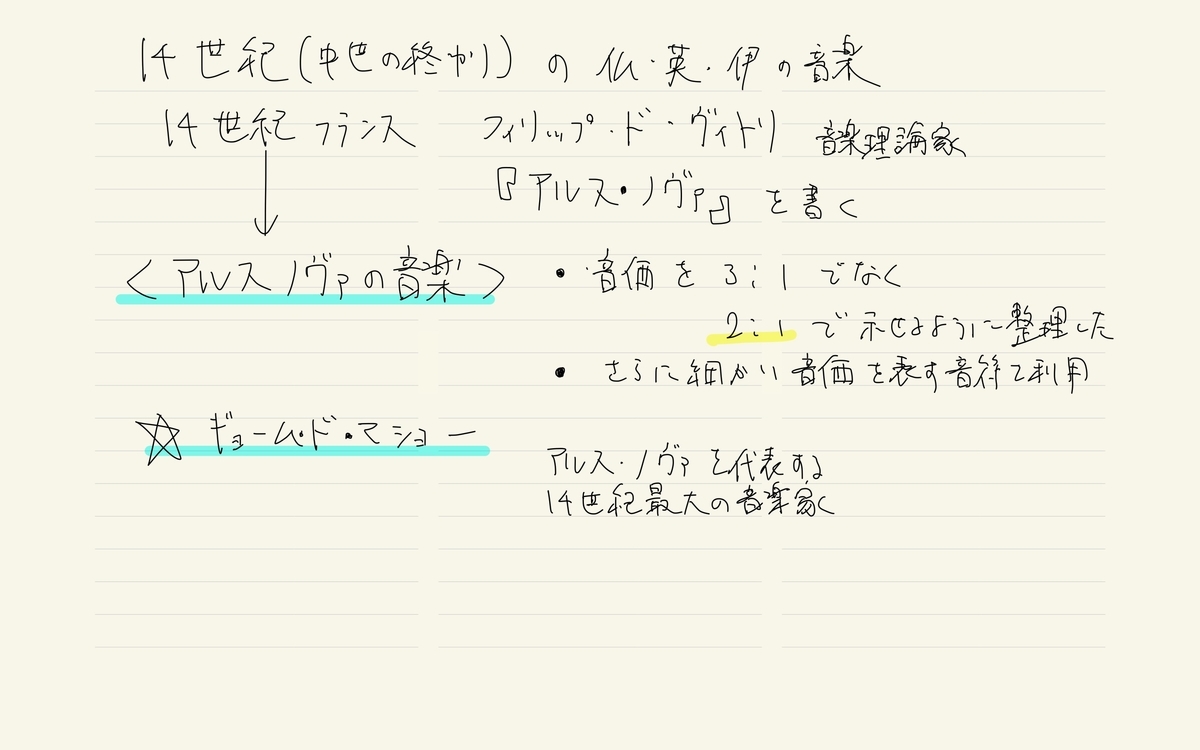 14世紀(中世の終わり)の仏・英・伊の音楽
14世紀フランス フィリップ・ド・ヴィトリ 音楽理論家
『アルス・ノヴァ』を書く
〈アルスノヴァの音楽〉 • 音価を3:1でなく
2:1で示せるように整理した
• さらに細かい音価を表す音符も利用
☆ ギョーム・ド・マショー
アルス・ノヴァを代表する
14世紀最大の音楽家